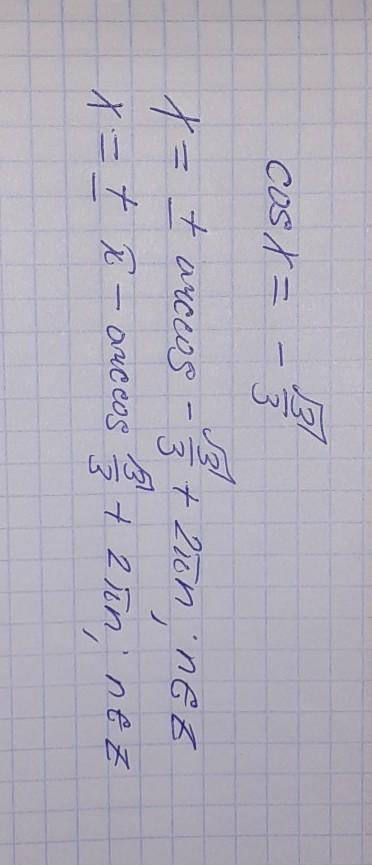 cos x = - √3/3
x = ± arccos - √3/3 + 2πn, n∈Z
x = ± π - arccos √3/3 + 2πn, n∈Z